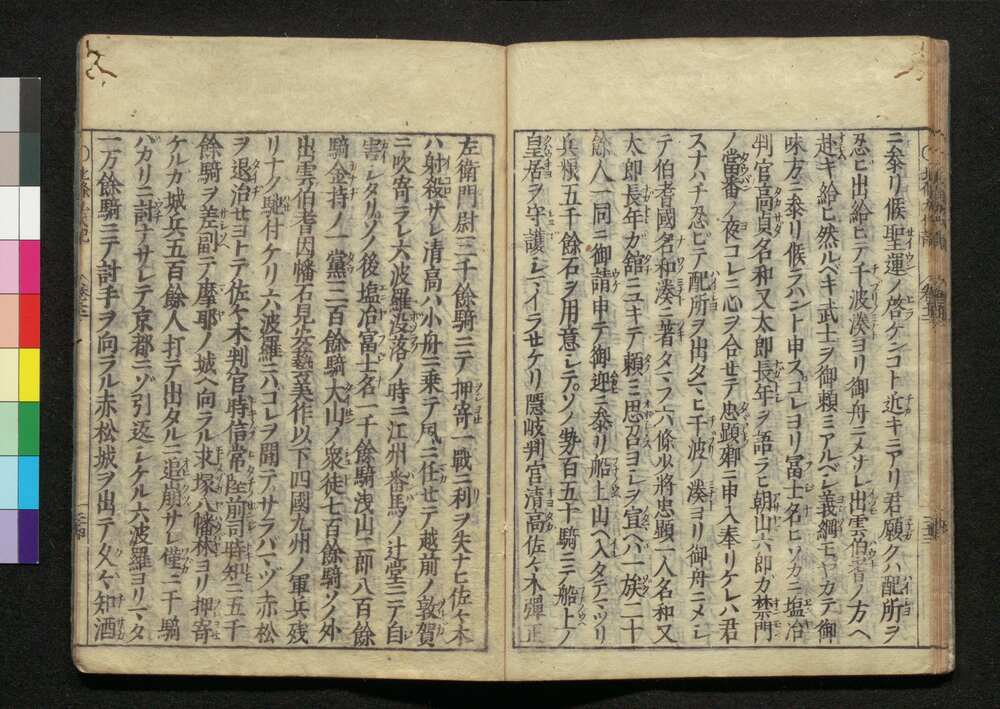 ニ参リ候聖運ノ啓ケンコト近キニアリ君願クハ配所ヲ
忍ビ出給ヒテ千波湊ヨリ御舟ニメサレ出雲伯耆ノ方ヘ
赴キ給ヒ然ルベキ武士ヲ御頼ミアルベシ義綱モヤカテ御
味方ニ参リ候ラハント申スコレヨリ冨士名ヒソカニ塩冶
判官高貞名和又太郎長年ヲ語ラヒ朝山六郎カ禁門
ノ當番ノ夜コレニ心ヲ合セテ忠顕卿ニ申入奉リケレハ君
スナハチ忍ヒテ配所ヲ出タマヒ千波ノ湊ヨリ御舟ニメシ
テ伯耆國名和湊ニ著タマフ六條少将忠顕一人名和又
太郎長年カ舘ニユキテ頼ミ思召ヨシヲ宣ヘハ一族二十
餘人一同ニ御請申テ御迎ニ参リ船上山ヘ入タテマツリ
兵粮五千餘石ヲ用意シテソノ勢百五十騎ニテ船上ノ
皇居ヲ守護シマイラセケリ隠岐判官清高佐々木彈正
左衛門尉三千餘騎ニテ押寄一戰ニ利ヲ失ナヒ佐々木
ハ射殺サレ清高ハ小舟ニ乗テ風ニ任セテ越前ノ敦賀
ニ吹寄ラレ六波羅没落ノ時ニ江州番馬ノ辻堂ニテ自
害シタリソノ後塩冶富士名一千餘騎浅山二郎八百餘
騎金持ノ一黨三百餘騎大山ノ衆徒七百餘騎ソノ外
出雲伯耆因幡石見安藝美作以下四國九州ノ軍兵残
リナク馳付ケリ六波羅ニハコレヲ聞テサラバマヅ赤松
ヲ退治セヨトテ佐々木判官時信常陸前司時知ニ五千
餘騎ヲ差副テ摩耶ノ城ヘ向ラル求塚八幡林ヨリ押寄
ケルカ城兵五百餘人打テ出タルニ追崩サレ僅ニ千騎
バカリニ討ナサレテ京都ニゾ引返シケル六波羅ヨリマタ
一万餘騎ニテ討手ヲ向ラル赤松城ヲ出テ久々知酒